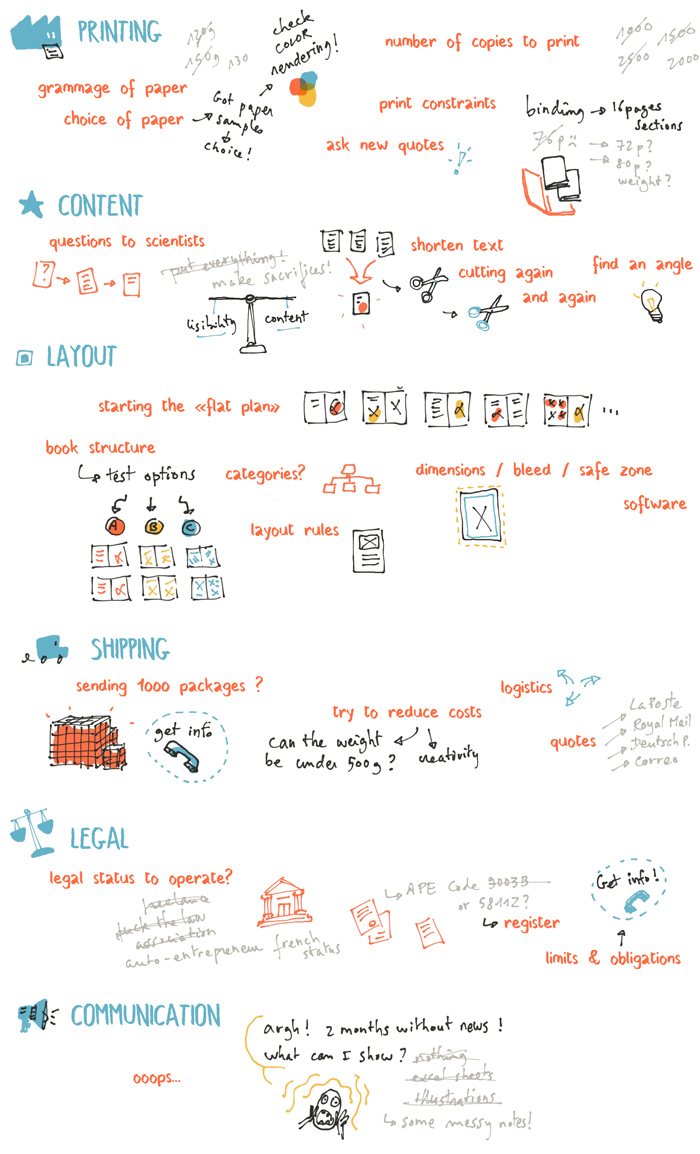 PRINTING
120g
150g 130
check
color
rendering!
number of copies to print
1000 1500
2500 2000
grammage of paper
choice of paper
Got paper
samples
choice!
print constraints
binding → 16 pages
sections
ask new quotes
76p
72p?
80p?
weight?
CONTENT
questions to scientists
?
put everything!
make sacrifices!
lisibility
content
shorten text
cutting again
and again
find an angle
LAYOUT
starting the «flat plan»
...
book structure
test options
A B C
categories?
layout rules
dimensions / bleed / safe zone
software
SHIPPING
sending 1000 packages ?
get info
try to reduce costs
can the weight
be under 500g?
creativity
logistics
quotes
La Poste
Royal Mail
Deutsch P.
Correo
LEGAL
legal status to operate?
freelance
fuck the law
association
auto-entrepreneur french
status
APE Code 9003B
or 5811Z?
register
Get info!
limits & obligations
COMMUNICATION
ooops...
argh! 2 months without news !
what can I show? nothing
excel sheets
illustrations
some messy notes!